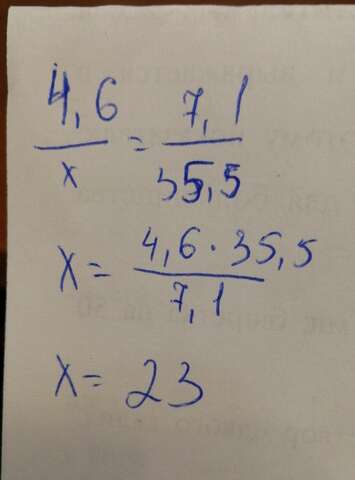 4,6/x = 7,1/35,5
x = 4,6·35,5/7,1
x = 23